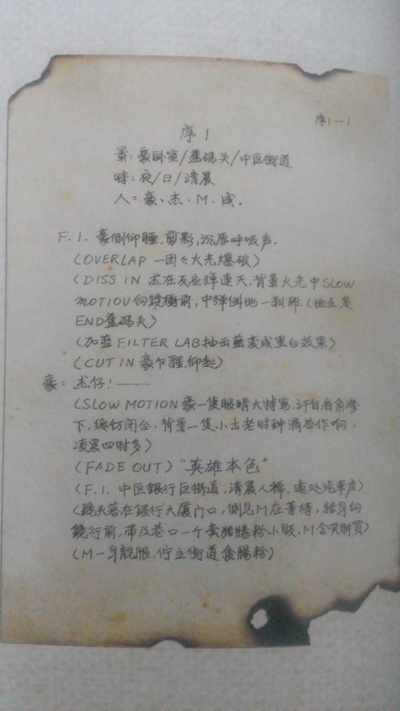 序1-1
序1
景:豪卧室/舊碼头/中区街道
時:夜/日/清晨
人:豪、杰、M、成。
F.1. 豪側仰睡,剪影,沉厚呼吸声.
(OVERLAP 一团々大光爆破)
(DISS IN 杰在友击弹連天,背景火光中SLOW
MOTION向鏡衝前,中弹倒地一刹那(地点是
END舊碼头)
(加藍FILTER LAB抽去藍变成黑白效果)
(CUT IN 豪乍醒,仰起)
豪:杰仔!——
(SLOW MOTION豪一隻眼睛大特写,汗自眉角滲
下,緩彷闭合,背景一隻小古老时钟滴答作响,
凌晨四时多)
(FADE OUT)"英雄本色"
(F.1. 中区銀行区街道,清晨人稀,遠处汽車声)
(鏡头落在銀行大厦门口,側見M在等待,轉身向
鏡行前,带及巷口一个卖猪腸粉小販,M含笑購買)
(M一身靓服,佇立街道食腸粉)